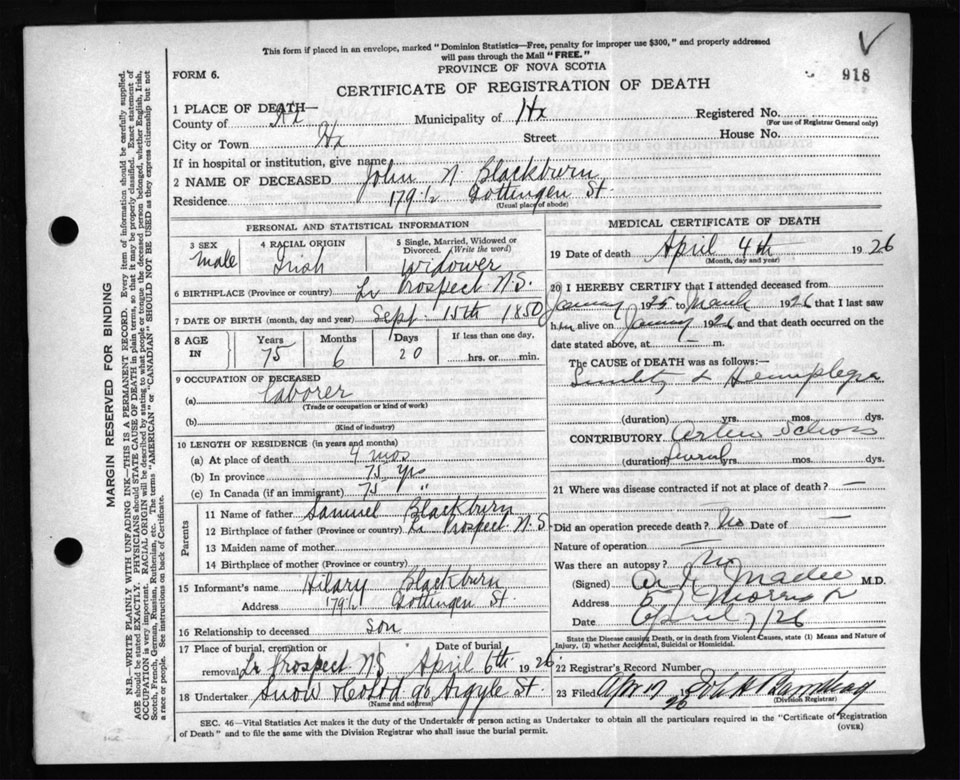 This form if placed in an envelope, marked "Dominion Statistics—Free, penalty for improper use $300," and properly addressed
will pass through the Mail "FREE."
PROVINCE OF NOVA SCOTIA
918
FORM 6.
CERTIFICATE OF REGISTRATION OF DEATH
1 PLACE OF DEATH—
County of Hx Municipality of Hx Registered No.
(For use of Registrar General only)
City or Town Hx Street House No.
If in hospital or institution, give name
2 NAME OF DECEASED John N Blackburn
Residence 179 1/2 Gottingen St.
(Usual place of abode)
PERSONAL AND STATISTICAL INFORMATION
3 SEX 4 RACIAL ORIGIN 5 Single, Married, Widowed or Divorced. (Write the word)
Male Irish Widower
6 BIRTHPLACE (Province or country) Lr Prospect N.S.
7 DATE OF BIRTH (month, day and year) Sept. 15th 1850
8 AGE IN Years Months Days If less than one day,
75 6 20 hrs. or min.
9 OCCUPATION OF DECEASED
(a) Laborer
(Trade or occupation or kind of work)
(b)
(Kind of industry)
10 LENGTH OF RESIDENCE (in years and months)
(a) At place of death 4 mos
(b) In province 75 yrs
(c) In Canada (if an immigrant) 75 "
Parents
11 Name of father Samuel Blackburn
12 Birthplace of father (Province or country) Lr Prospect N.S.
13 Maiden name of mother
14 Birthplace of Mother (Province or country)
15 Informant's name Hilary Blackburn
Address 179 1/2 Gottingen St.
16 Relationship to deceased son
17 Place of burial, cremation or removal Date of burial
Lr Prospect N S April 6th 1926
18 Undertaker Snow & Co Ltd 90 Argyle St.
(Name and address)
MEDICAL CERTIFICATE OF DEATH
19 Date of death April 4th 1926
(Month, day and year)
20 I HEREBY CERTIFY that I attended deceased from
January 1925 to March 1926 that I last saw
him alive on January 1926 and that death occurred on the
date stated above, at — m.
The CAUSE of DEATH was as follows:—
& Hemiplegia
(duration) yrs. mos. dys.
CONTRIBUTORY Arterio Scleros
(duration) Several mos. dys.
21 Where was disease contracted if not at place of death? —
Did an operation precede death? No Date of —
Nature of operation —
Was there an autopsy? No
(Signed) M.D.
Address Morris
Date April 7/26
State the Disease causing Death, or in death from Violent Causes, state (1) Means and Nature of
Injury, (2) whether Accidental, Suicidal or Homicidal.
22 Registrar's Record Number
23 Filed Apr 1926
(Division Registrar)
SEC. 46—Vital Statistics Act makes it the duty of the Undertaker or person acting as Undertaker to obtain all the particulars required in the "Certificate of Registration
of Death" and to file the same with the Division Registrar who shall issue the burial permit.
(OVER)
MARGIN RESERVED FOR BINDING
N.B.—WRITE PLAINLY WITH UNFADING INK—THIS IS A PERMANENT RECORD. Every item of information should be carefully supplied.
AGE should be stated EXACTLY. PHYSICIANS should STATE CAUSE OF DEATH in plain terms, so that it may be properly classified. Exact statement of
OCCUPATION is very important. RACIAL ORIGIN will be described by stating to what people or tongue the deceased person belonged, whether English, Irish,
Scotch, French, German, Russian, Ruthenian, etc. The terms "AMERICAN" or "CANADIAN" SHOULD NOT BE USED as they express citizenship but not
a race or people. See instructions on back of Certificate.